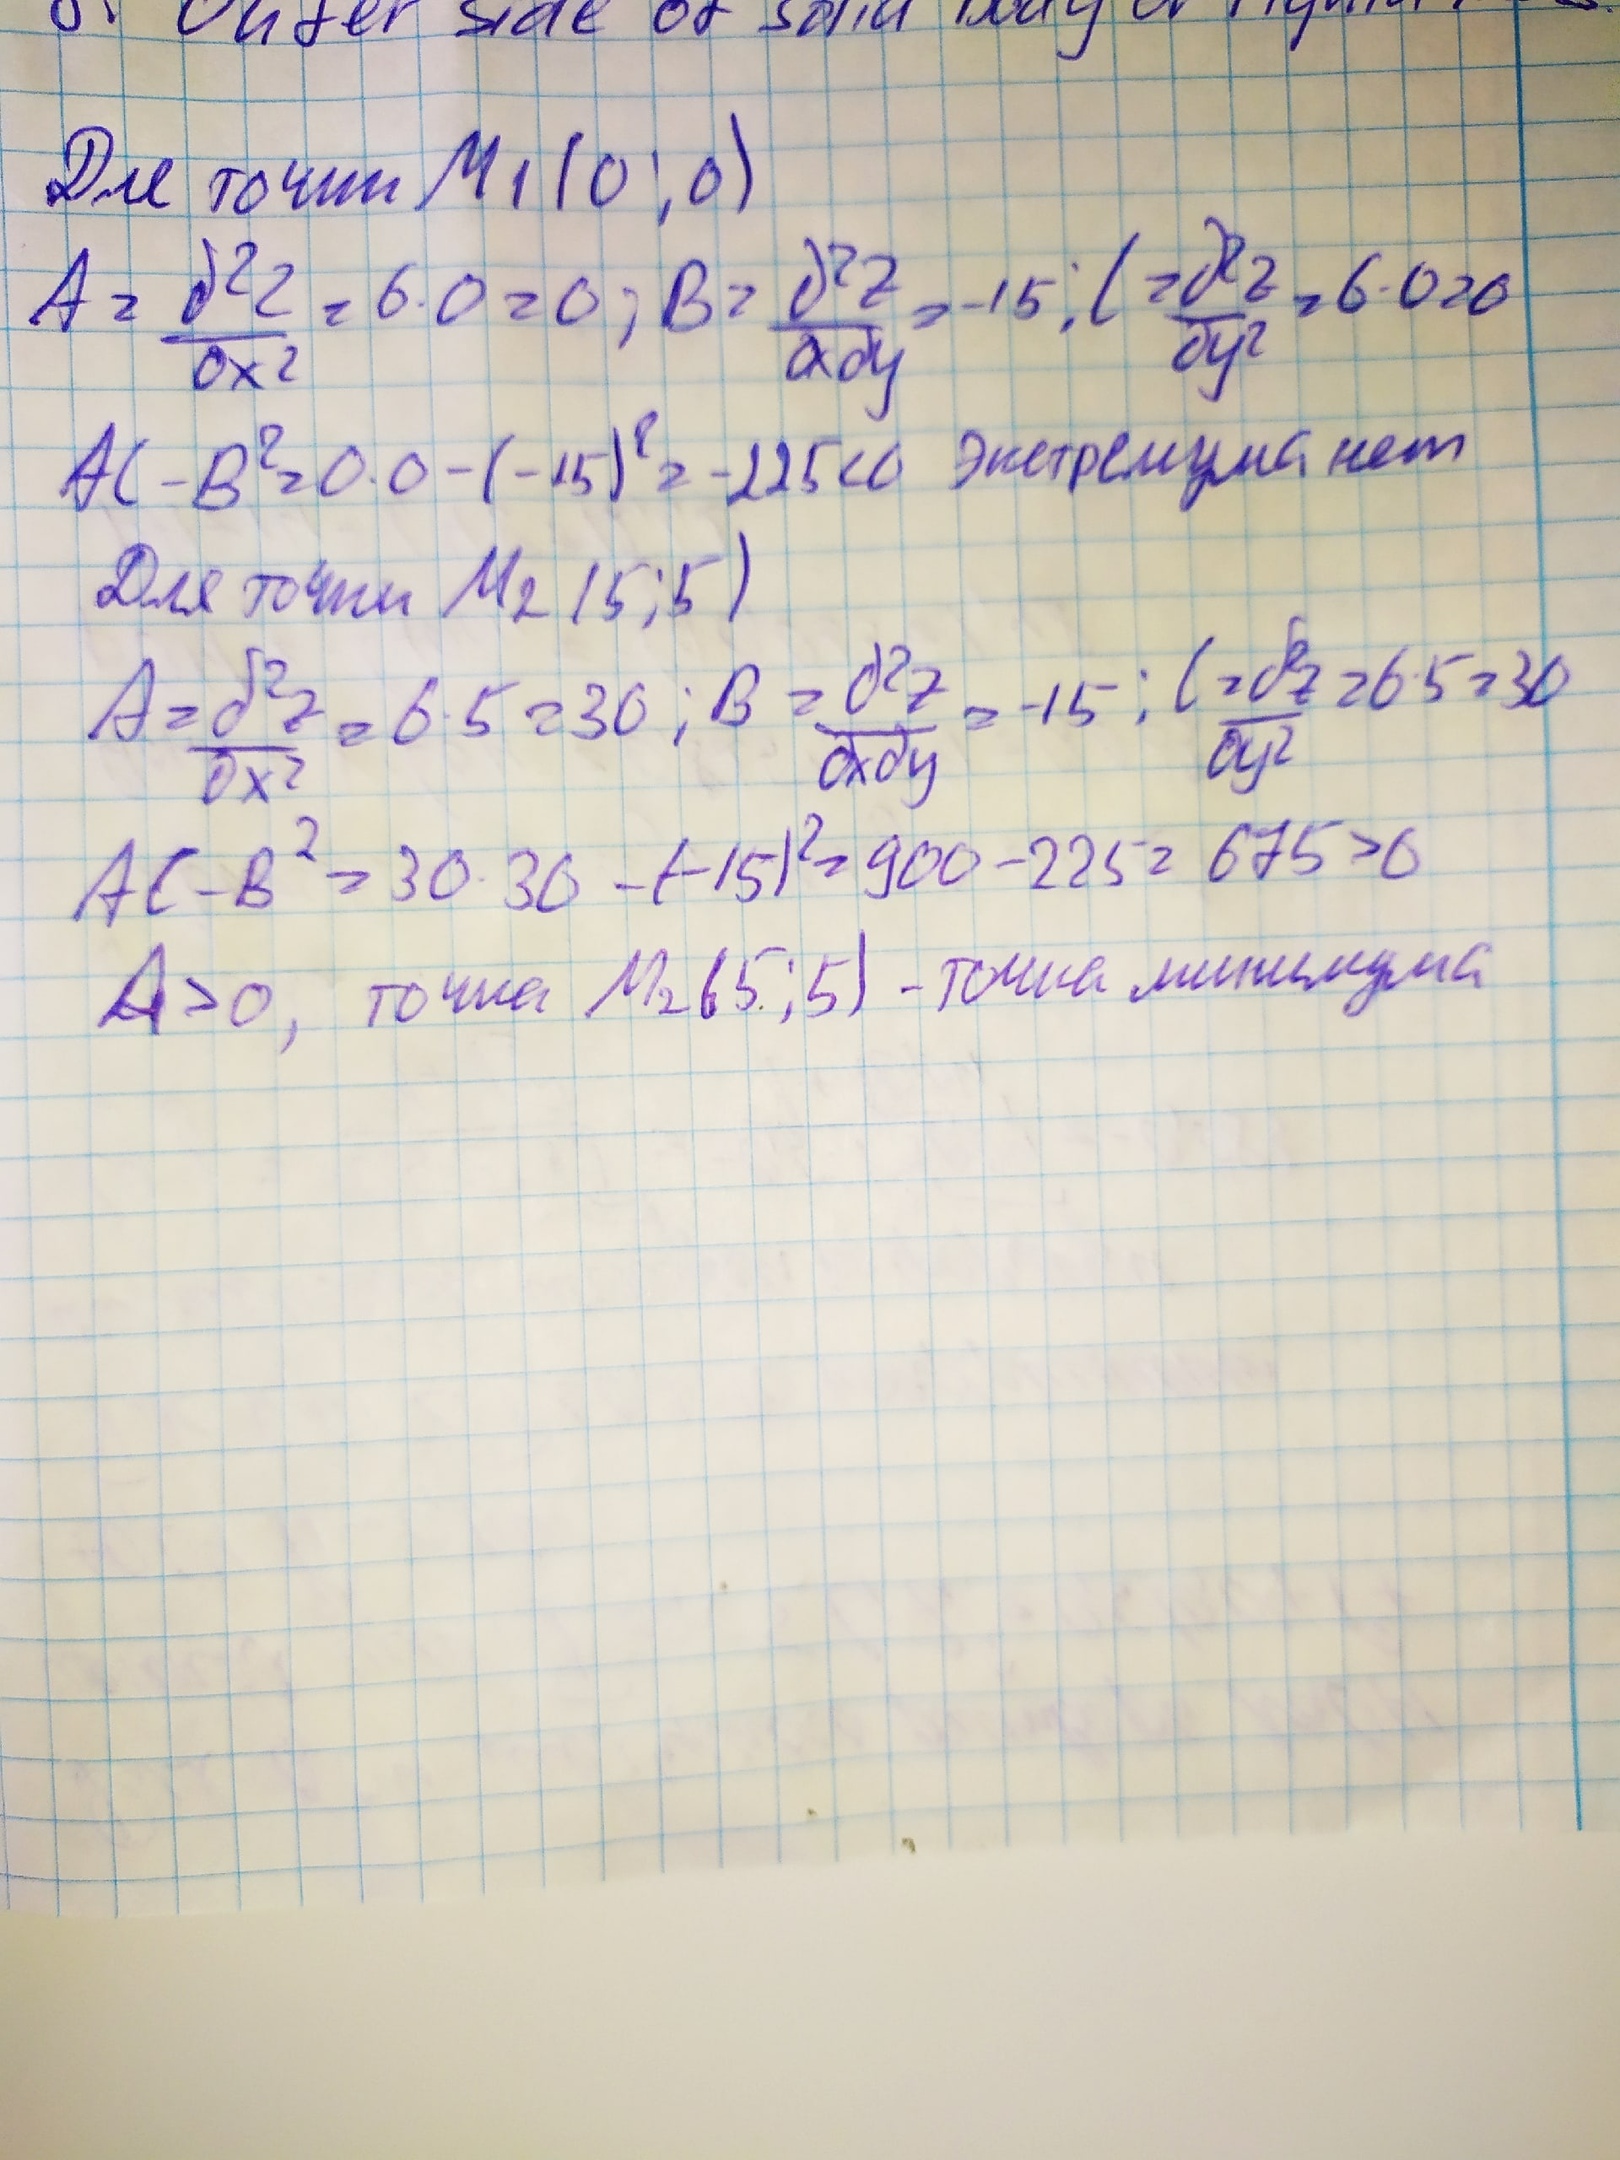 Outer side of solid body or
Для точки M₁(0;0)
A = ∂²z/∂x² = 6·0 = 0; B = ∂²z/∂x∂y = -15; C = ∂²z/∂y² = 6·0 = 0
AC - B² = 0·0 - (-15)² = -225 < 0 Экстремума нет
Для точки M₂(5;5)
A = ∂²z/∂x² = 6·5 = 30; B = ∂²z/∂x∂y = -15; C = ∂²z/∂y² = 6·5 = 30
AC - B² = 30·30 - (-15)² = 900 - 225 = 675 > 0
A > 0, точка M₂(5;5) - точка минимума